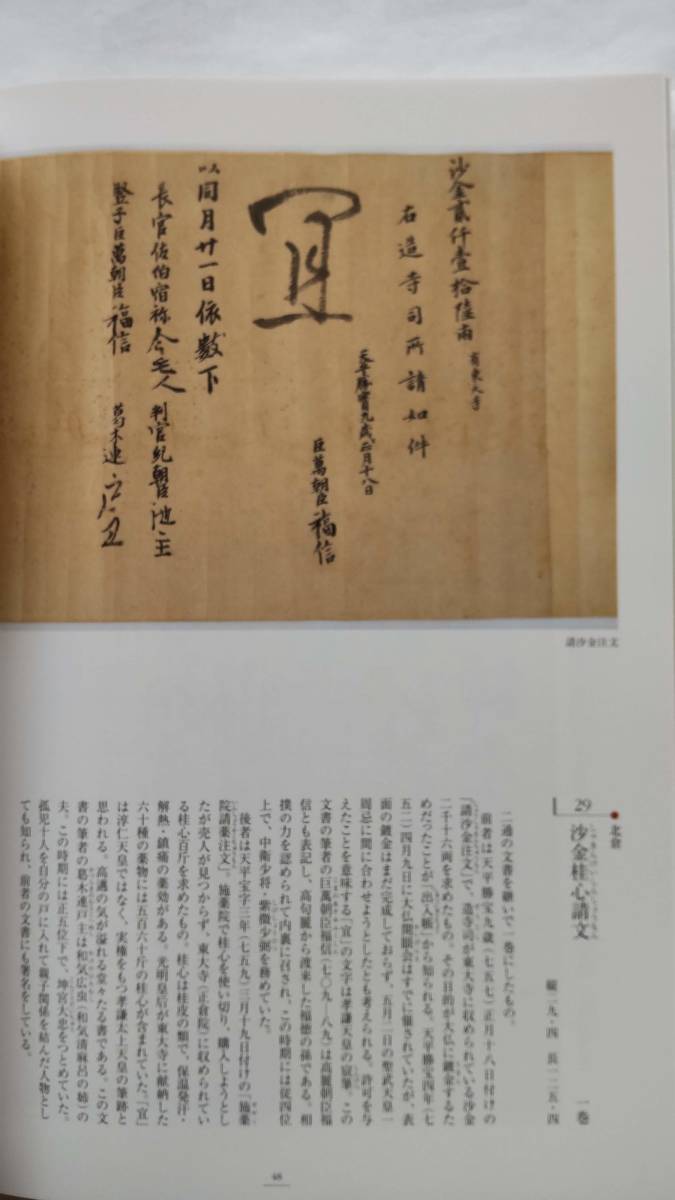 沙金貳仟壹拾陸兩 有東大寺
右造寺司所請如件
天平勝寳九歳正月十八日
巨萬朝臣福信
宜
以同月廿一日依數下
長官佐伯宿祢今毛人 判官紀朝臣池主
竪子巨萬朝臣福信 葛木連戸主
請沙金注文
●北倉
29 沙金桂心請文 一巻
しゃきんけいしんしょうもん
縦二九・四 長一二五・四
二通の文書を継いで一巻にしたもの。
前者は天平勝宝九歳(七五七)正月十八日付けの
「請沙金注文」で、造寺司が東大寺に収められている沙金
二千十六両を求めたもの。その目的が大仏に鍍金するた
めだったことが「出入帳」から知られる。天平勝宝四年(七
五二)四月九日に大仏開眼会はすでに催されていたが、表
面の鍍金はまだ完成しておらず、五月二日の聖武天皇一
周忌に間に合わせようとしたとも考えられる。許可を与
えたことを意味する「宜」の文字は孝謙天皇の宸筆。この
文書の筆者の巨萬朝臣福信(七〇九―八九)は高麗朝臣福
信とも表記し、高句麗から渡来した福徳の孫である。相
撲の力を認められて内裏に召され、この時期には従四位
上で、中衛少将・紫微少弼を務めていた。
後者は天平宝字三年(七五九)三月十九日付けの「施薬
院請薬注文」。施薬院で桂心を使い切り、購入しようとし
たが売人が見つからず、東大寺(正倉院)に収められてい
る桂心百斤を求めたもの。桂心は桂皮の類で、保温発汗・
解熱・鎮痛の薬効がある。光明皇后が東大寺に献納した
六十種の薬物には五百六十斤の桂心が含まれていた。「宜」
は淳仁天皇ではなく、実権をもつ孝謙太上天皇の筆跡と
思われる。高邁の気が溢れる堂々たる書である。この文
書の筆者の葛木連戸主は和気広虫(和気清麻呂の姉)の
夫。この時期には正五位下で、坤宮大忠をつとめていた。
孤児十人を自分の戸に入れて親子関係を結んだ人物とし
ても知られ、前者の文書にも署名をしている。
48